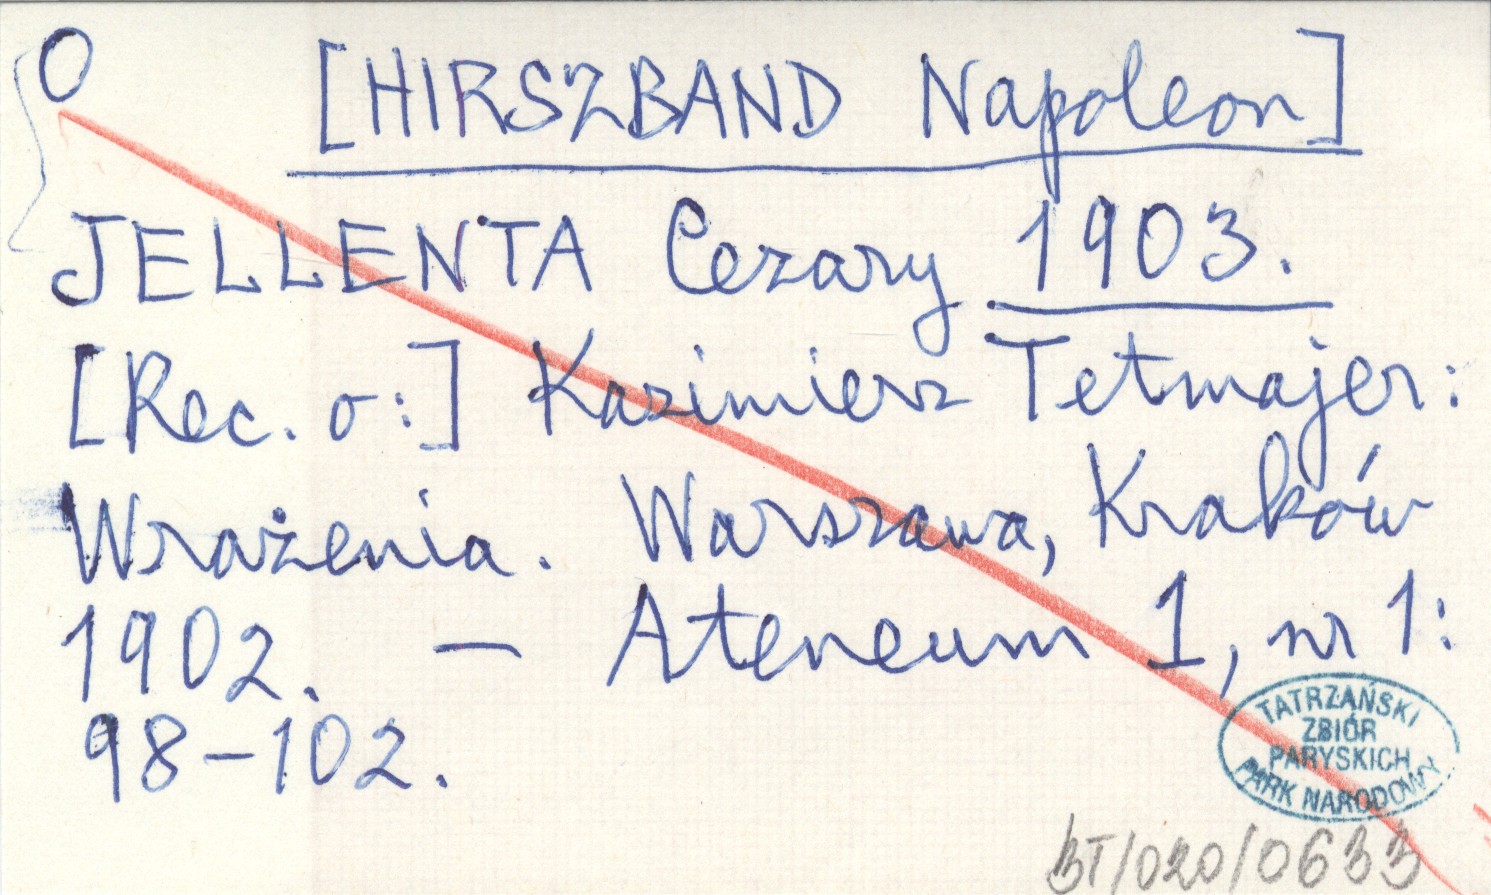 O [HIRSZBAND Napoleon]
JELLENTA Cezary 1903.
[Rec. o:] Kazimierz Tetmajer:
Wrażenia. Warszawa, Kraków
1902. — Ateneum 1, nr 1:
98-102.
TATRZAŃSKI
ZBIÓR
PARYSKICH
PARK NARODOWY
BT/020/0633